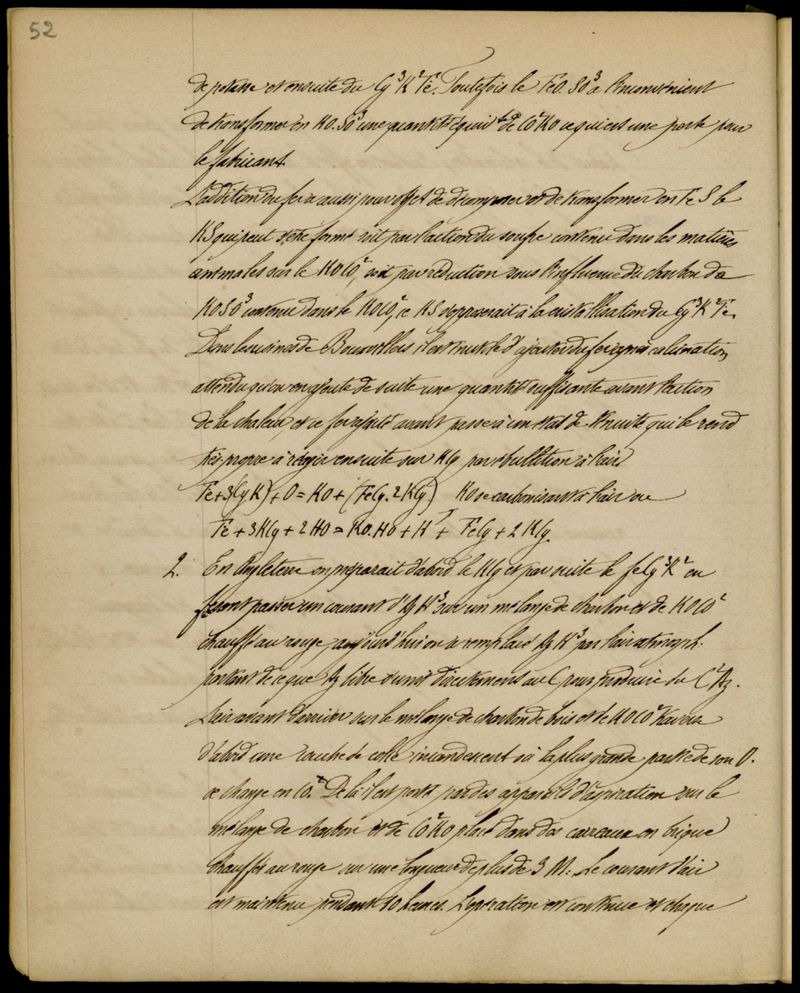 52
de potasse et ensuite du Cy³K²Fe. Toutefois le FeO.SO³ a l'inconvénient
de transformer en KO.SO³ une quantité équiv^te de CO²KO ce qui est une perte pour
le fabricant.
L'addition du fer a aussi pour effet de décomposer et de transformer en FeS le
KS qui peut s'être formé soit par l'action du soufre contenu dans les matières
animales sur le KOCO², soit par réduction sous l'influence du charbon du
KOSO³ contenu dans le KOCO², ce KS s'opposerait à la cristallisation du Cy³K²Fe.
Dans les usines de Bouxwillers il est inutile d'ajouter du fer après calcination,
attendu qu'on en ajoute de suite une quantité suffisante avant l'action
de la chaleur, et ce fer ajouté avant passe à un état de ténuité qui le rend
très propre à réagir ensuite sur KCy par ébullition à l'air
Fe+3(CyK)+O=KO+(FeCy.2KCy) KO se carbonisant à l'air ou
Fe+3KCy+2HO=KO.HO+H+FeCy+2KCy.
2. En Angleterre on préparait d'abord le KCy et par suite le FeCy³K² en
faisant passer un courant d'AzH³ sur un mélange de charbon et de KOCO²
chauffé au rouge aujourd'hui on a remplacé AzH³ par l'air atmosph.
partant de ce que Az libre s'unit directement au C pour produire du C²Az.
L'air avant d'arriver sur le mélange de charbon de bois et de KOCO² traverse
d'abord une couche de coke incandescent où la plus grande partie de son O.
se change en CO.² De là il est porté par des appareils d'aspiration sur le
mélange de charbon et de CO²KO placé dans des carreaux en brique
chauffés au rouge sur une longueur de plus de 3 M. Le courant d'air
est maintenu pendant 10 heures. L'opération est continue et chaque